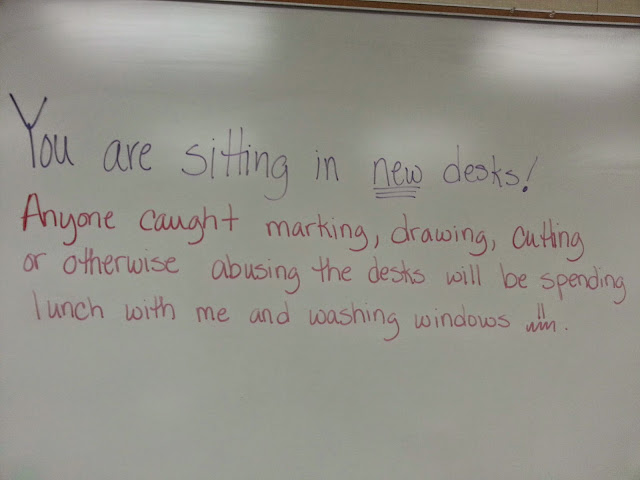 You are sitting in new desks!
Anyone caught marking, drawing, cutting
or otherwise abusing the desks will be spending
lunch with me and washing windows